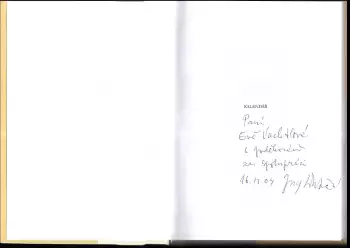 KALENDÁŘ
Paní
Evě Vachtlové
s poděkováním
za spolupráci
16. 11. 04